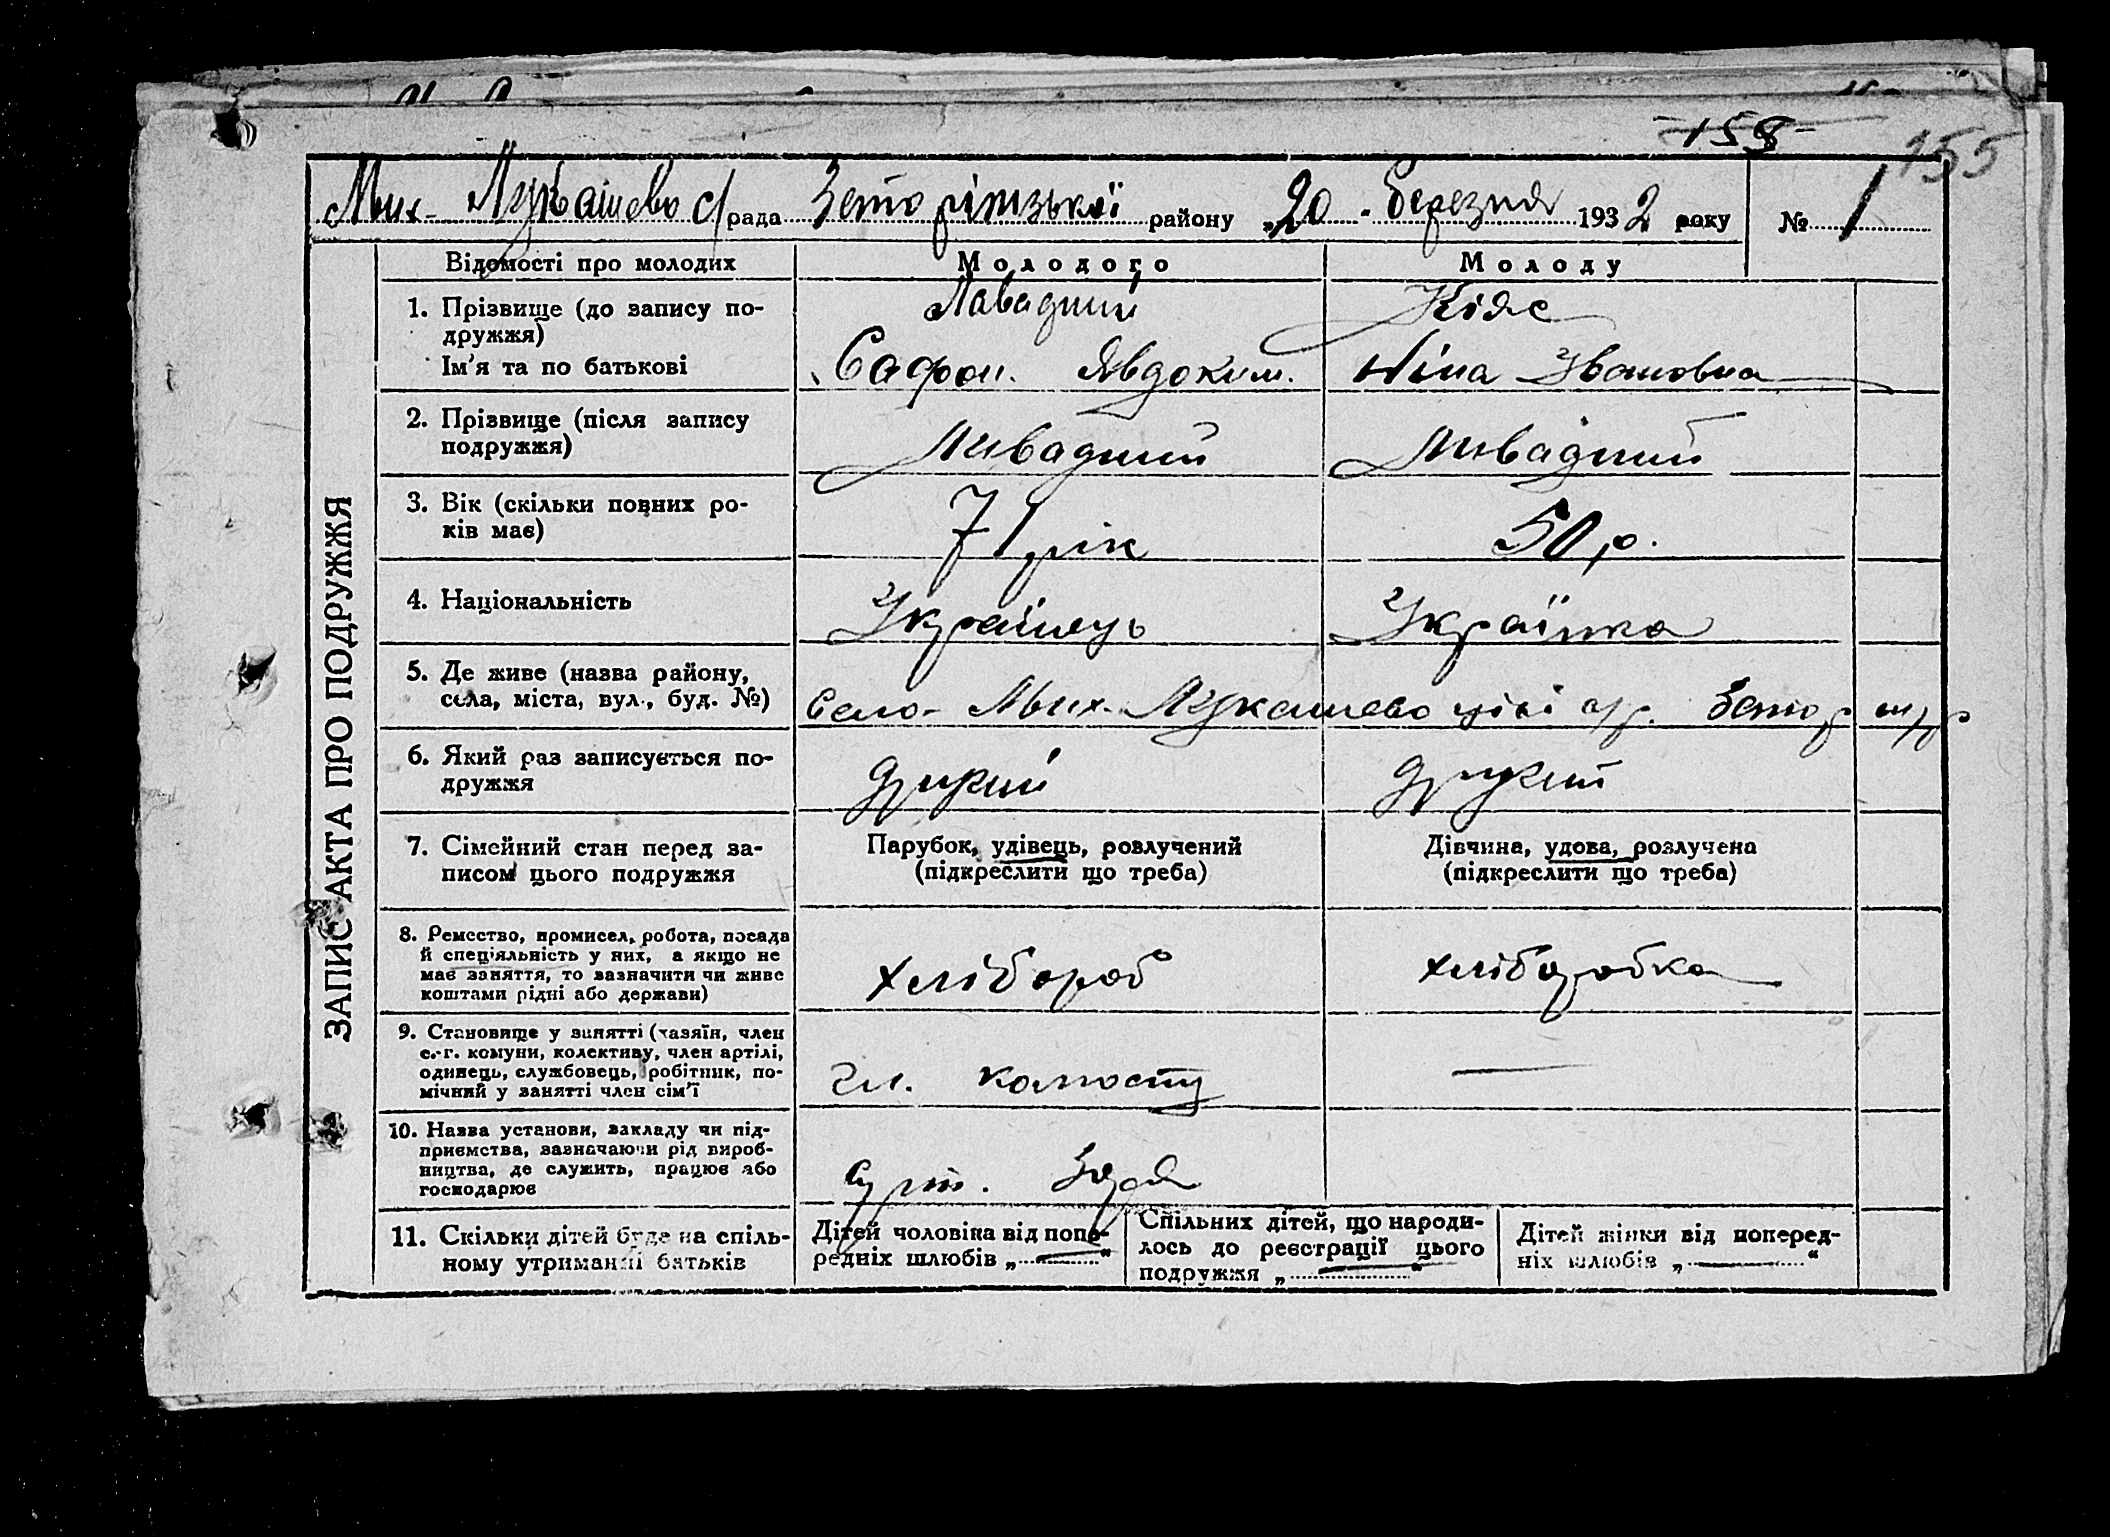 158
155
Мих- Лукашево с/рада Запорізької району „20 . березня 1932 року № 1
ЗАПИС АКТА ПРО ПОДРУЖЖЯ
Відомості про молодих Молодого Молоду
1. Прізвище (до запису по-
дружжя)
Ім'я та по батькові
Ливадний
Сафон. Явдоким.
Кіяс
Ніна Івановна
2. Прізвище (після запису
подружжя)
Ливадний Ливадний
3. Вік (скільки повних ро-
ків має)
71 рік 50 р.
4. Національність
Українець Українка
5. Де живе (назва району,
села, міста, вул., буд. №)
Село- Мих. Лукашево
6. Який раз записується по-
дружжя
другий другий
7. Сімейний стан перед за-
писом цього подружжя
Парубок, удівець, розлучений
(підкреслити що треба)
Дівчина, удова, розлучена
(підкреслити що треба)
8. Ремество, промисел, робота, посада
й спеціяльність у них, а якщо не
має заняття, то зазначити чи живе
коштами рідні або держави)
хлібороб хліборобка
9. Становище у занятті (хазяїн, член
с.-г. комуни, колективу, член артілі,
одинець, службовець, робітник, по-
мічний у занятті член сім'ї
чл.
10. Назва установи, закладу чи під-
приємства, зазначаючи рід вироб-
ництва, де служить, працює або
господарює
11. Скільки дітей буде на спіль-
ному утриманні батьків
Дітей чоловіка від попе-
редніх шлюбів „ — “
Спільних дітей, що народи-
лось до реєстрації цього
подружжя „ — “
Дітей жінки від поперед-
ніх шлюбів „ — “